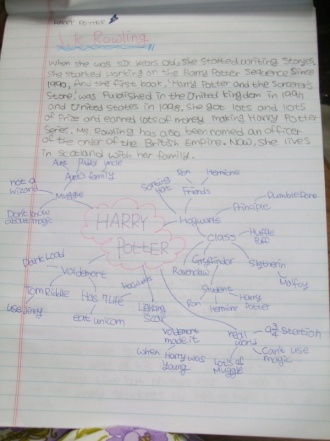 J.K Rowling
When she was six years old, she started writing storys,
she started working on the Harry Potter Sequence since
1990, and the first book, 'Harry Potter and the Sorcerer's
Stone', was Published in the United Kingdom in 1997
and United States in 1998, she got lots and lots
of Prize and earned lots of money making Harry Potter
Series, Ms. Rowling has also been named an officer
of the order of the British Empire. Now, she lives
in scotland with her family.
Aunt
uncle
Aunt's family
Muggle
not a
wizard
Don't know
about magic
HARRY
POTTER
Sorting
hat
Ron
Hermione
Friends
Hogwarts
Dumbledore
Principle
Class
Huffle
Puff
Slytherin
Malfoy
Gryffindor
Ravenclaw
Student
Ron
Hermione
Harry
Potter
Dark Lord
Voldemort
Tom Riddle
Has 7 life
Eat unicorn
Lightning
Scar
Voldemort
made it
When Harry was
Young
real
world
9¾ Station
Can't use
magic
Lots of
Muggle